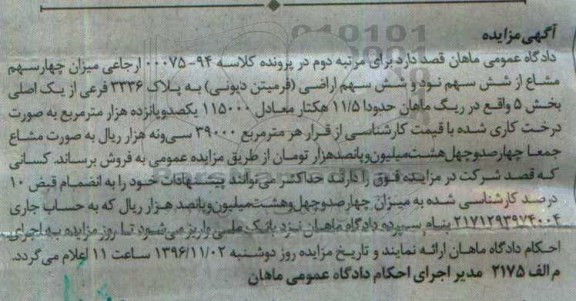 آگهی مزایده
دادگاه عمومی ماهان قصد دارد برای مرتبه دوم در پرونده کلاسه ۹۴-۰۰۰۷۵ ارجاعی میزان چهارسهم
مشاع از شش سهم نود و شش سهم اراضی (فرمیتن دیونی) به پلاک ۳۳۳۶ فرعی از یک اصلی
بخش ۵ واقع در ریگ ماهان حدودا ۱۱/۵ هکتار معادل ۱۱۵۰۰۰ یکصدوپانزده هزار مترمربع به صورت
درخت کاری شده با قیمت کارشناسی از قرار هر مترمربع ۳۹۰۰۰ سی‌ونه هزار ریال به صورت مشاع
جمعا چهارصدوچهل‌هشت‌میلیون‌وپانصدهزار تومان از طریق مزایده عمومی به فروش برساند. کسانی
که قصد شرکت در مزایده فوق را دارند حداکثر می‌توانند پیشنهادات خود را به انضمام قبض ۱۰
درصد کارشناسی شده به میزان چهارصدوچهل‌وهشت‌میلیون‌وپانصد هزار ریال که به حساب جاری
۲۱۷۱۲۹۳۹۷۴۰۰۴ بنام سپرده دادگاه ماهان نزد بانک ملی واریز می‌شود تا روز مزایده به اجرای
احکام دادگاه ماهان ارائه نمایند و تاریخ مزایده روز دوشنبه ۱۳۹۶/۱۱/۰۲ ساعت ۱۱ اعلام می‌گردد.
م الف ۲۱۷۵ مدیر اجرای احکام دادگاه عمومی ماهان